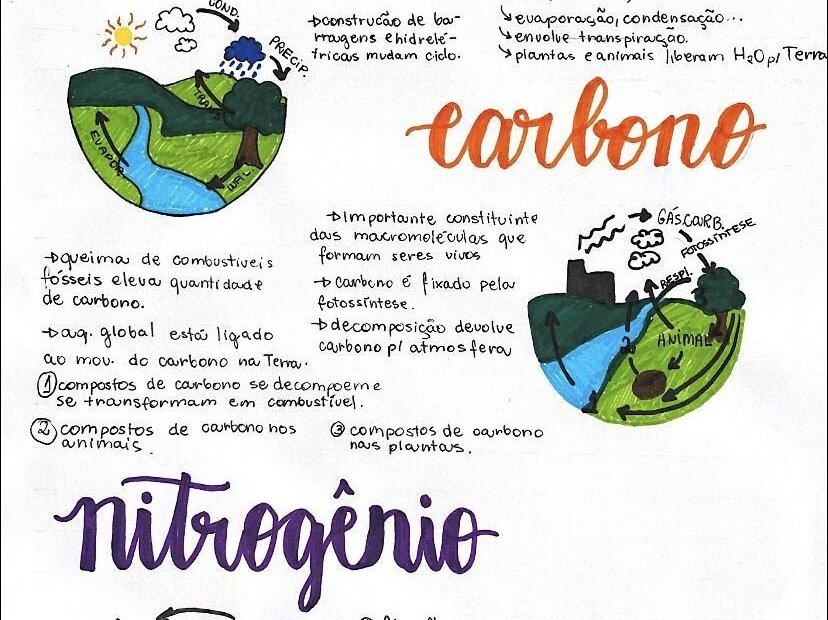 COND.
PRECIP.
TRANS
EVAPOR.
INFIL.
→construcão de bar-
ragens e hidrelé-
tricas mudam ciclo.
↘evaporação, condensação...
↘envolve transpiração.
↘plantas e animais liberam H2O p/ Terra
carbono
→Importante constituinte
das macromoléculas que
formam seres vivos
→carbono é fixado pela
fotossíntese.
→decomposição devolve
carbono p/ atmosfera
→queima de combustíveis
fósseis eleva quantidade
de carbono.
→aq. global está ligado
ao mov. do carbono na Terra.
① compostos de carbono se decompoem e
se transformam em combustível.
② compostos de carbono nos
animais.
③ compostos de carbono
nas plantas.
GÁS.CARB.
FOTOSSÍNTESE
RESPI.
ANIMAL
nitrogênio